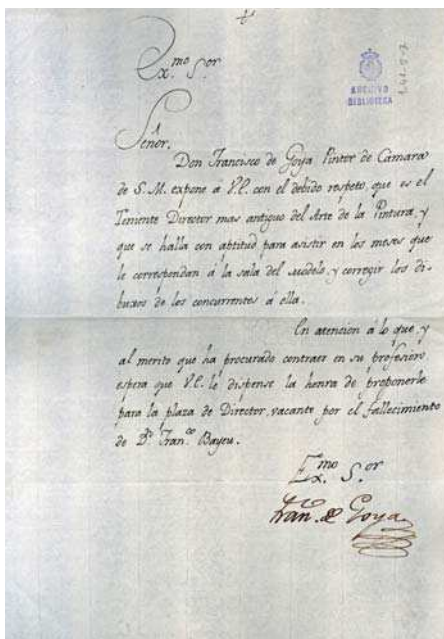 Ex.mo S.or
ARCHIVO
BIBLIOTECA
Señor.
Don Francisco de Goya Pintor de Cámara
de S.M. expone á V.E. con el debido respeto, que es el
Teniente Director mas antiguo del Arte de la Pintura, y
que se halla con abtitud para asistir en los meses que
le correspondan á la sala del modelo, y corregir los di-
buxos de los concurrentes á ella.
En atencion á lo que, y
al merito que ha procurado contraer en su profesion
espera que V.E. le dispense la honra de proponerle
para la plaza de Director, vacante por el fallecimiento
de D.n Fran.co Bayeu.
Ex.mo S.or
Fran.co de Goya